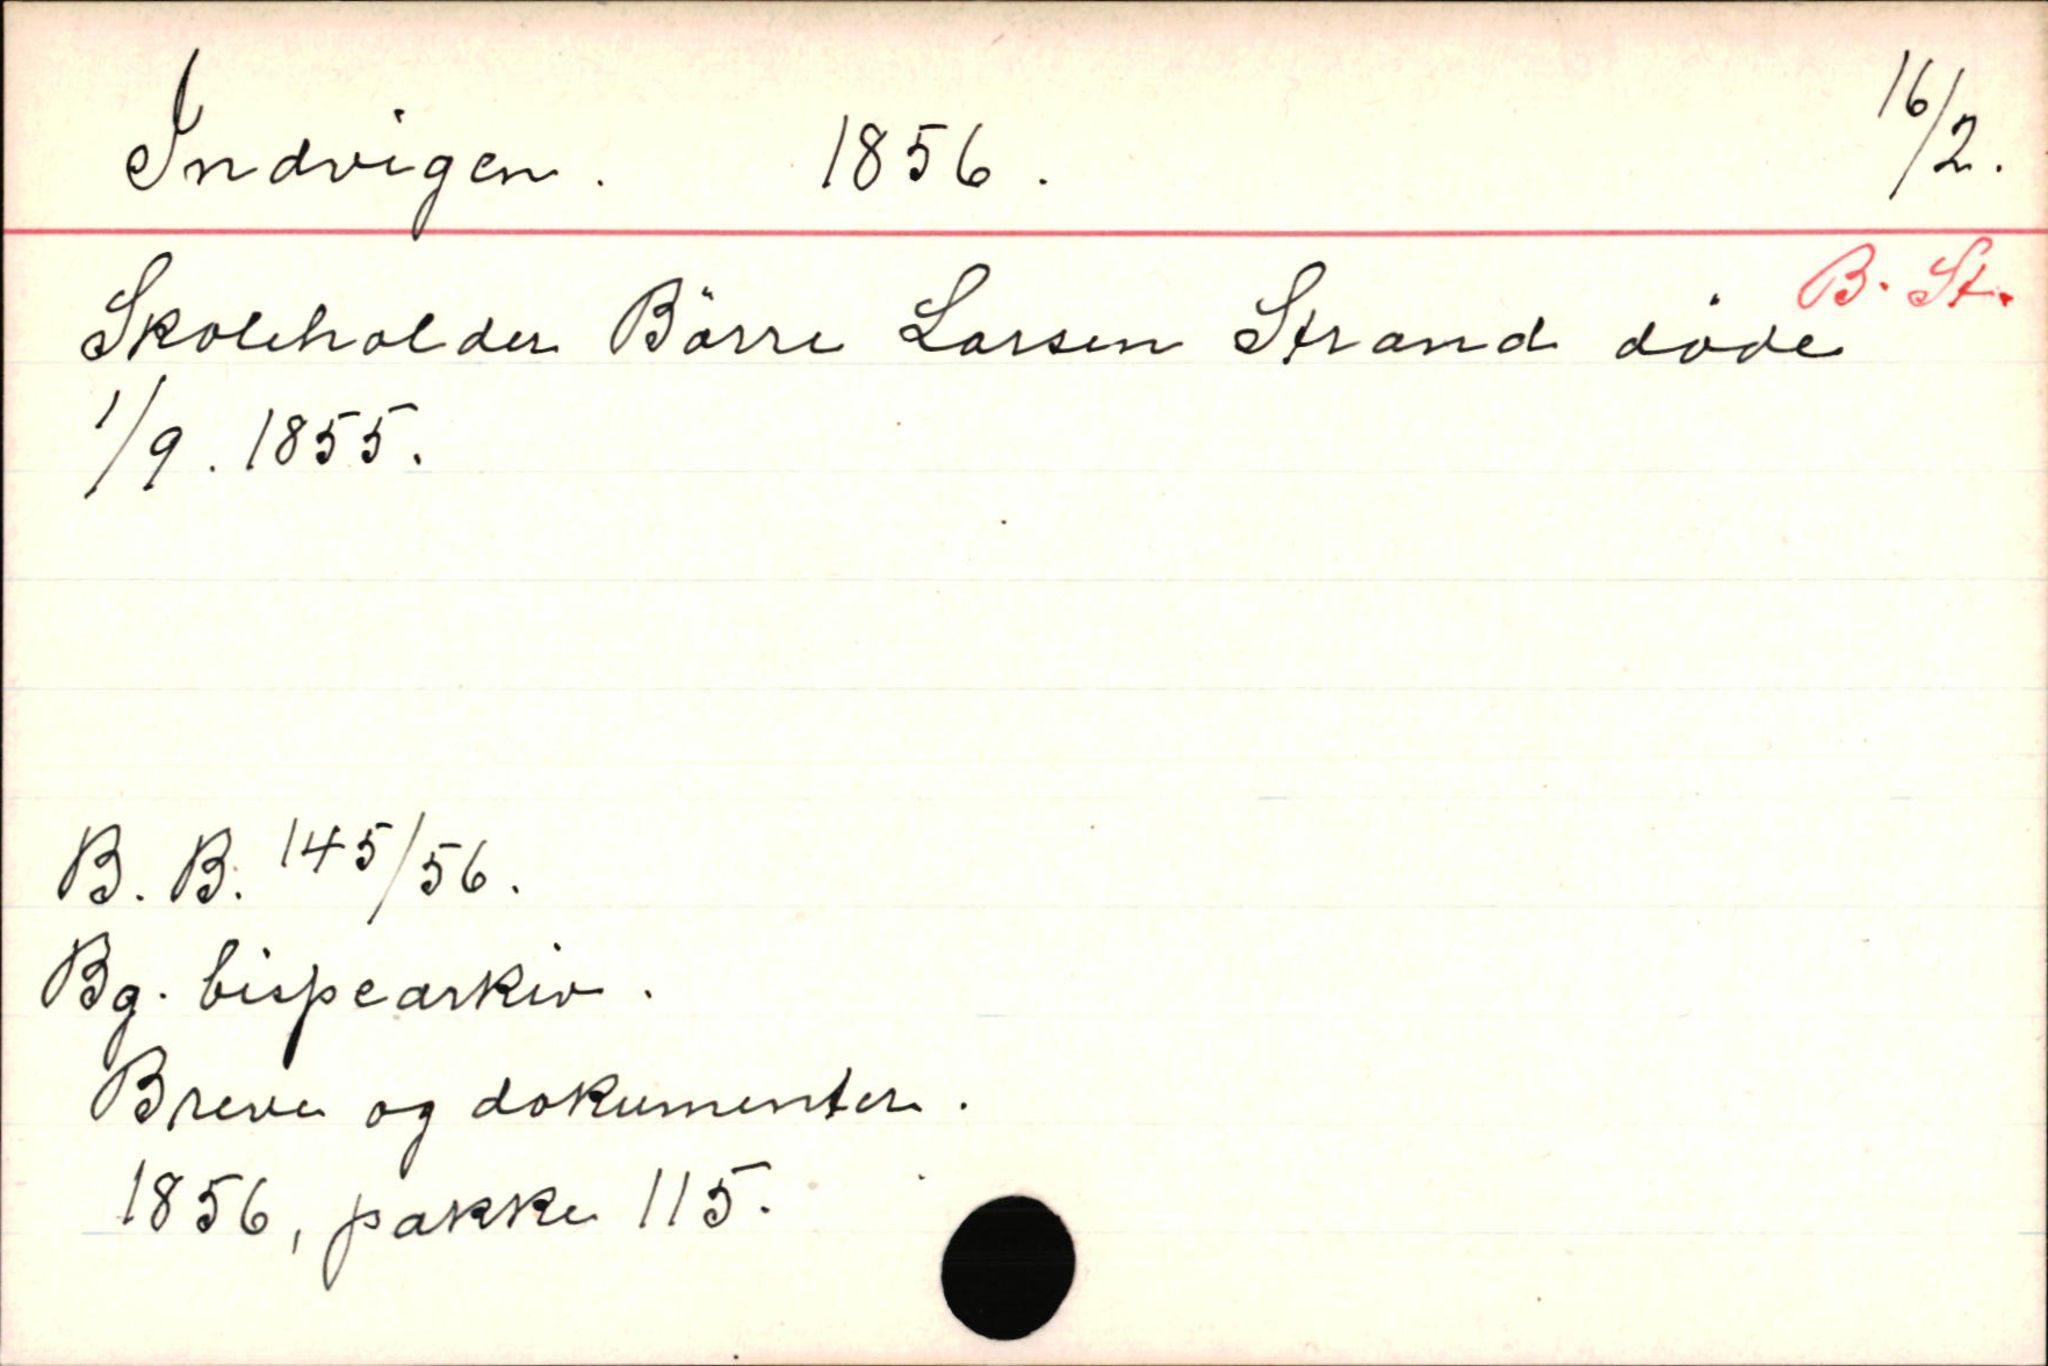 Indvigen. 1856. 16/2.
B. St.
Skoleholder Börre Larsen Strand döde
1/9. 1855.
B. B. 145/56.
Bg. bispearkiv.
Breve og dokumenter.
1856, pakke 115.